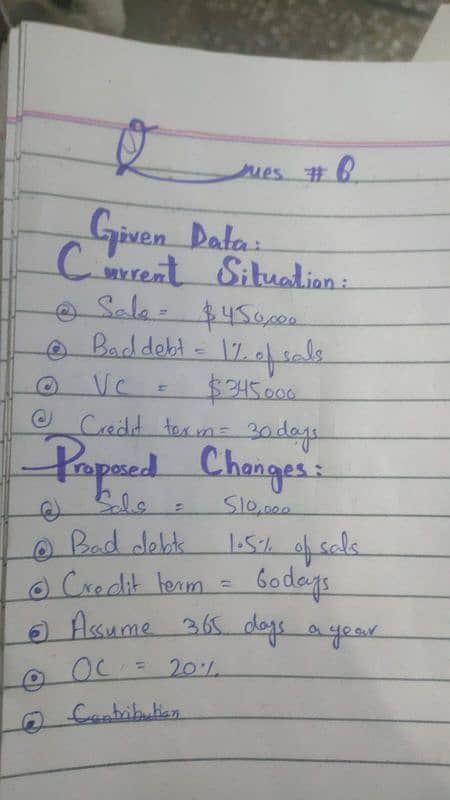 Ques # 6
Given Data:
Current Situation:
@ Sale = $450,000
@ Bad debt = 1% of sals
@ VC = $345000
@ Credit term = 30 days
Proposed Changes:
@ Sals = 510,000
@ Bad debts 1.5% of sals
@ Credit term = 60 days
@ Assume 365 days a year
@ OC = 20%
@ Contribution